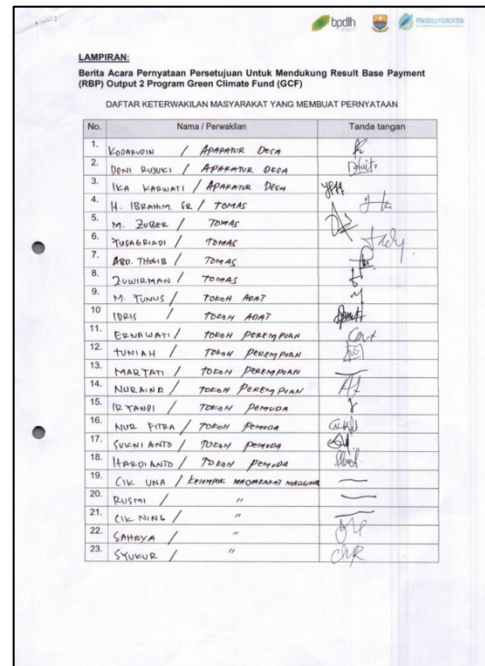 bpdlh
PENABULU FOUNDATION
LAMPIRAN:
Berita Acara Pernyataan Persetujuan Untuk Mendukung Result Base Payment
(RBP) Output 2 Program Green Climate Fund (GCF)
DAFTAR KETERWAKILAN MASYARAKAT YANG MEMBUAT PERNYATAAN
No. Nama / Perwakilan Tanda tangan
1. KODARUDIN / APARATUR DESA
2. DENI RUJUKI / APARATUR DESA
3. IKA KARWATI / APARATUR DESA
4. H. IBRAHIM. SR / TOMAS
5. M. ZUBER / TOMAS
6. / TOMAS
7. ABD. THOIB / TOMAS
8. ZUWIRMAN / TOMAS
9. M. YUNUS / TOKOH ADAT
10 IDRIS / TOKOH ADAT
11. ERNAWATI / TOKOH PEREMPUAN
12. TUNIAH / TOKOH PEREMPUAN
13. MARTATI / TOKOH PEREMPUAN
14. NURAINA / TOKOH PEREMPUAN
15. / TOKOH PEMUDA
16. NUR FITRA / TOKOH PEMUDA
17. SUKNI ANTO / TOKOH PEMUDA
18. HARDIANTO / TOKOH PEMUDA
19. CIK UNA / KELOMPOK
20. RUSMI / "
21. CIK NING / "
22. SAHAYA / "
23. SYUKUR / "